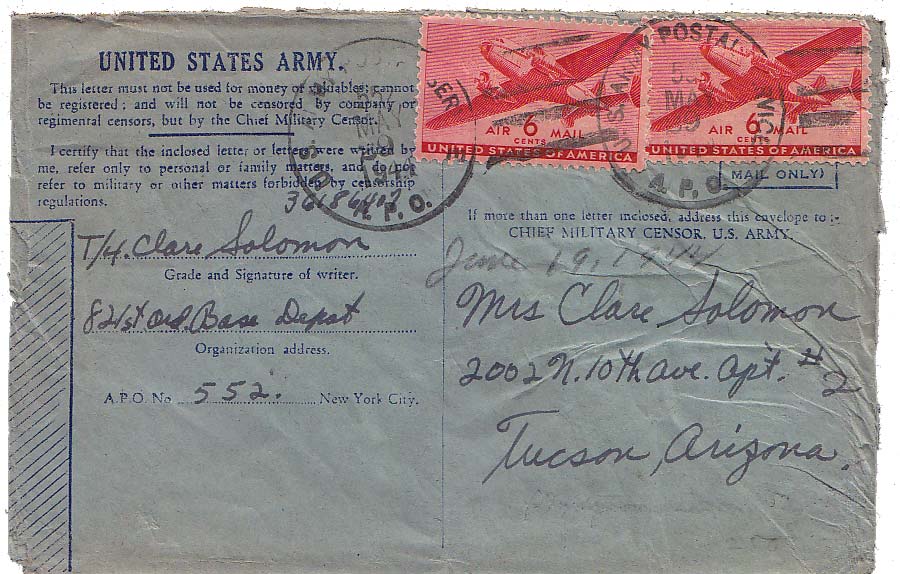 UNITED STATES ARMY.
This letter must not be used for money or valuables; cannot
be registered; and will not be censored by company or
regimental censors, but by the Chief Military Censor.
I certify that the inclosed letter or letters were written by
me, refer only to personal or family matters, and do not
refer to military or other matters forbidden by censorship
regulations.
T/4. Clare Solomon
Grade and Signature of writer.
821st Ord. Base Depot
Organization address.
A.P.O. No 552. New York City.
AIR 6 MAIL
CENTS
UNITED STATES OF AMERICA
AIR 6 MAIL
CENTS
UNITED STATES OF AMERICA
POSTAL
MAY
A. P. O.
MAY
A. P. O.
MAIL ONLY)
If more than one letter inclosed, address this envelope to :-
CHIEF MILITARY CENSOR, U.S. ARMY.
June 19, 1944
Mrs Clare Solomon
2002 N. 10th ave. apt. #2
Tucson, Arizona.